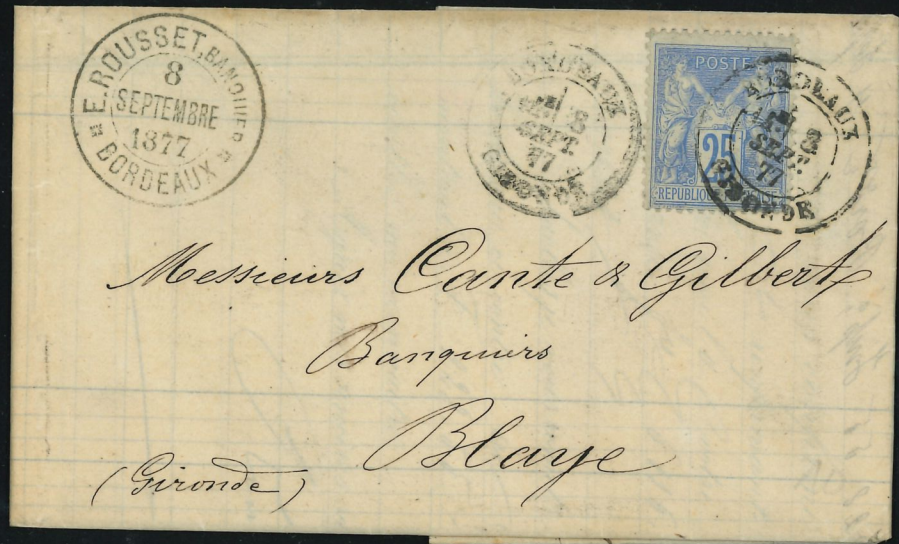 E. ROUSSET, BANQUIER
8
SEPTEMBRE
1877
BORDEAUX
BORDEAUX
8
SEPT.
77
GIRONDE
POSTE
25
REPUBLIQUE
BORDEAUX
8
SEPT.
77
GIRONDE
Messieurs Cante & Gilbert
Banquiers
Blaye
(Gironde)